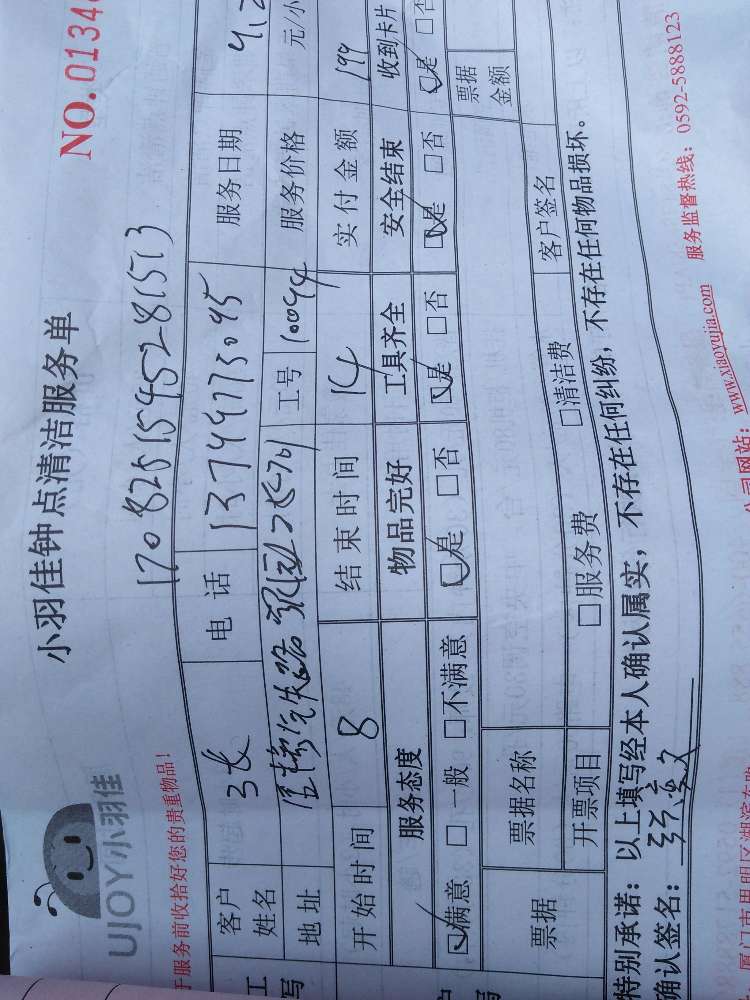 NO.0134
小羽佳钟点清洁服务单
UJOY小羽佳
1708261545281513
于服务前收拾好您的贵重物品!
客户姓名 电话 13749773095 服务日期
地址 工号 10094 服务价格 元/小
开始时间 8 结束时间 14 实付金额 199
服务态度 物品完好 工具齐全 安全结束 收到卡片
满意 □一般 □不满意 是 □否 是 □否 是 □否 是 □否
票据 票据名称 票据金额
开票项目 □服务费 □清洁费 客户签名
特别承诺:以上填写经本人确认属实,不存在任何纠纷,不存在任何物品损坏。
确认签名:
公司网站:www.xiaoyujia.com 服务监督热线:0592-5888123